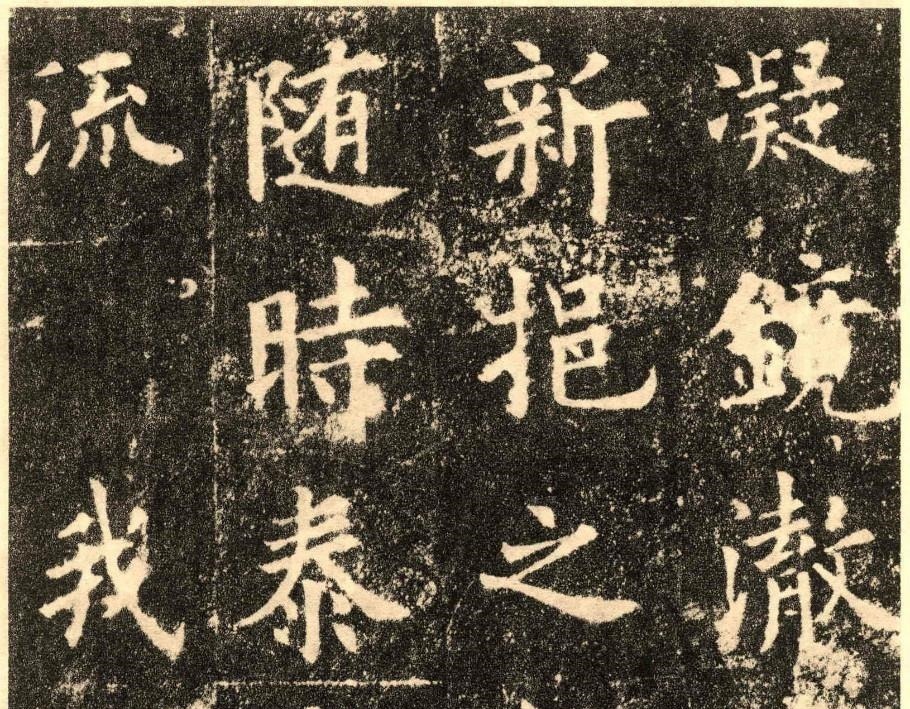 凝鏡澈
新挹之
随時泰
流我